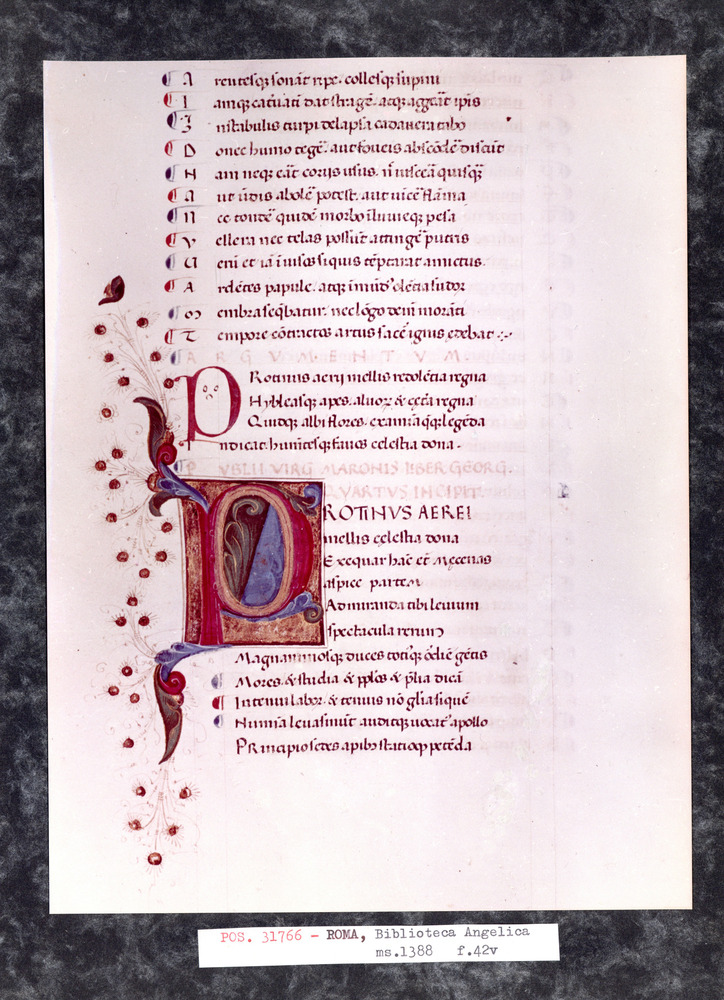 A rentesq; sonāt ripe. collesq; supini
I amq; catuati dat stragē. atq; aggeāt ipis
I nstabulis turpi delapsa cadauera tabo
D onec humo tegē. aut foueis abscōdē discūt
N am neq; eāt coriis usus. n̄ uisceā quisq̄
A ut ūdis abolē potest. aut uīcē flāma
N ec tondē quidē morbo īluuieq; pesa
V ellera nec telas possūt attingē putris
U erū et iā īuisos siquis tēptarat amictus.
A rdētes papule. atq; inmūd' olētia sudor
M embra seq̄batur. nec lōgo deīn morāti
T empore cōtractos artus sacē ignis edebat
A R G V M E N T V M
P Rotinus aerij mellis redolētia regna
Hybleasq; apes. aluoȝ & cęēa regna
Quidq; albi flores. examīa q̄q; legēda
ndicat. humētesq; fauos celestia dona.
P VBLII VIRG MARONIS LIBER GEORG.
QVARTVS INCIPIT.
P ROTINVS AEREI
mellis cęlestia dona
Exequar hāc et Męcenas
aspice partem
Admiranda tibi leuium
spectacula rerum
Magnanimosq; duces totiq; ōdiē gētis
Mores. & studia & pplos & p̄lia dicā
In tenui labor. & tenuis nō glīa siquē
Numina leua sinunt auditq; uocat' apollo
Principio sedes apibȝ statioq; petēda
POS. 31766 - ROMA, Biblioteca Angelica
ms.1388 f.42v